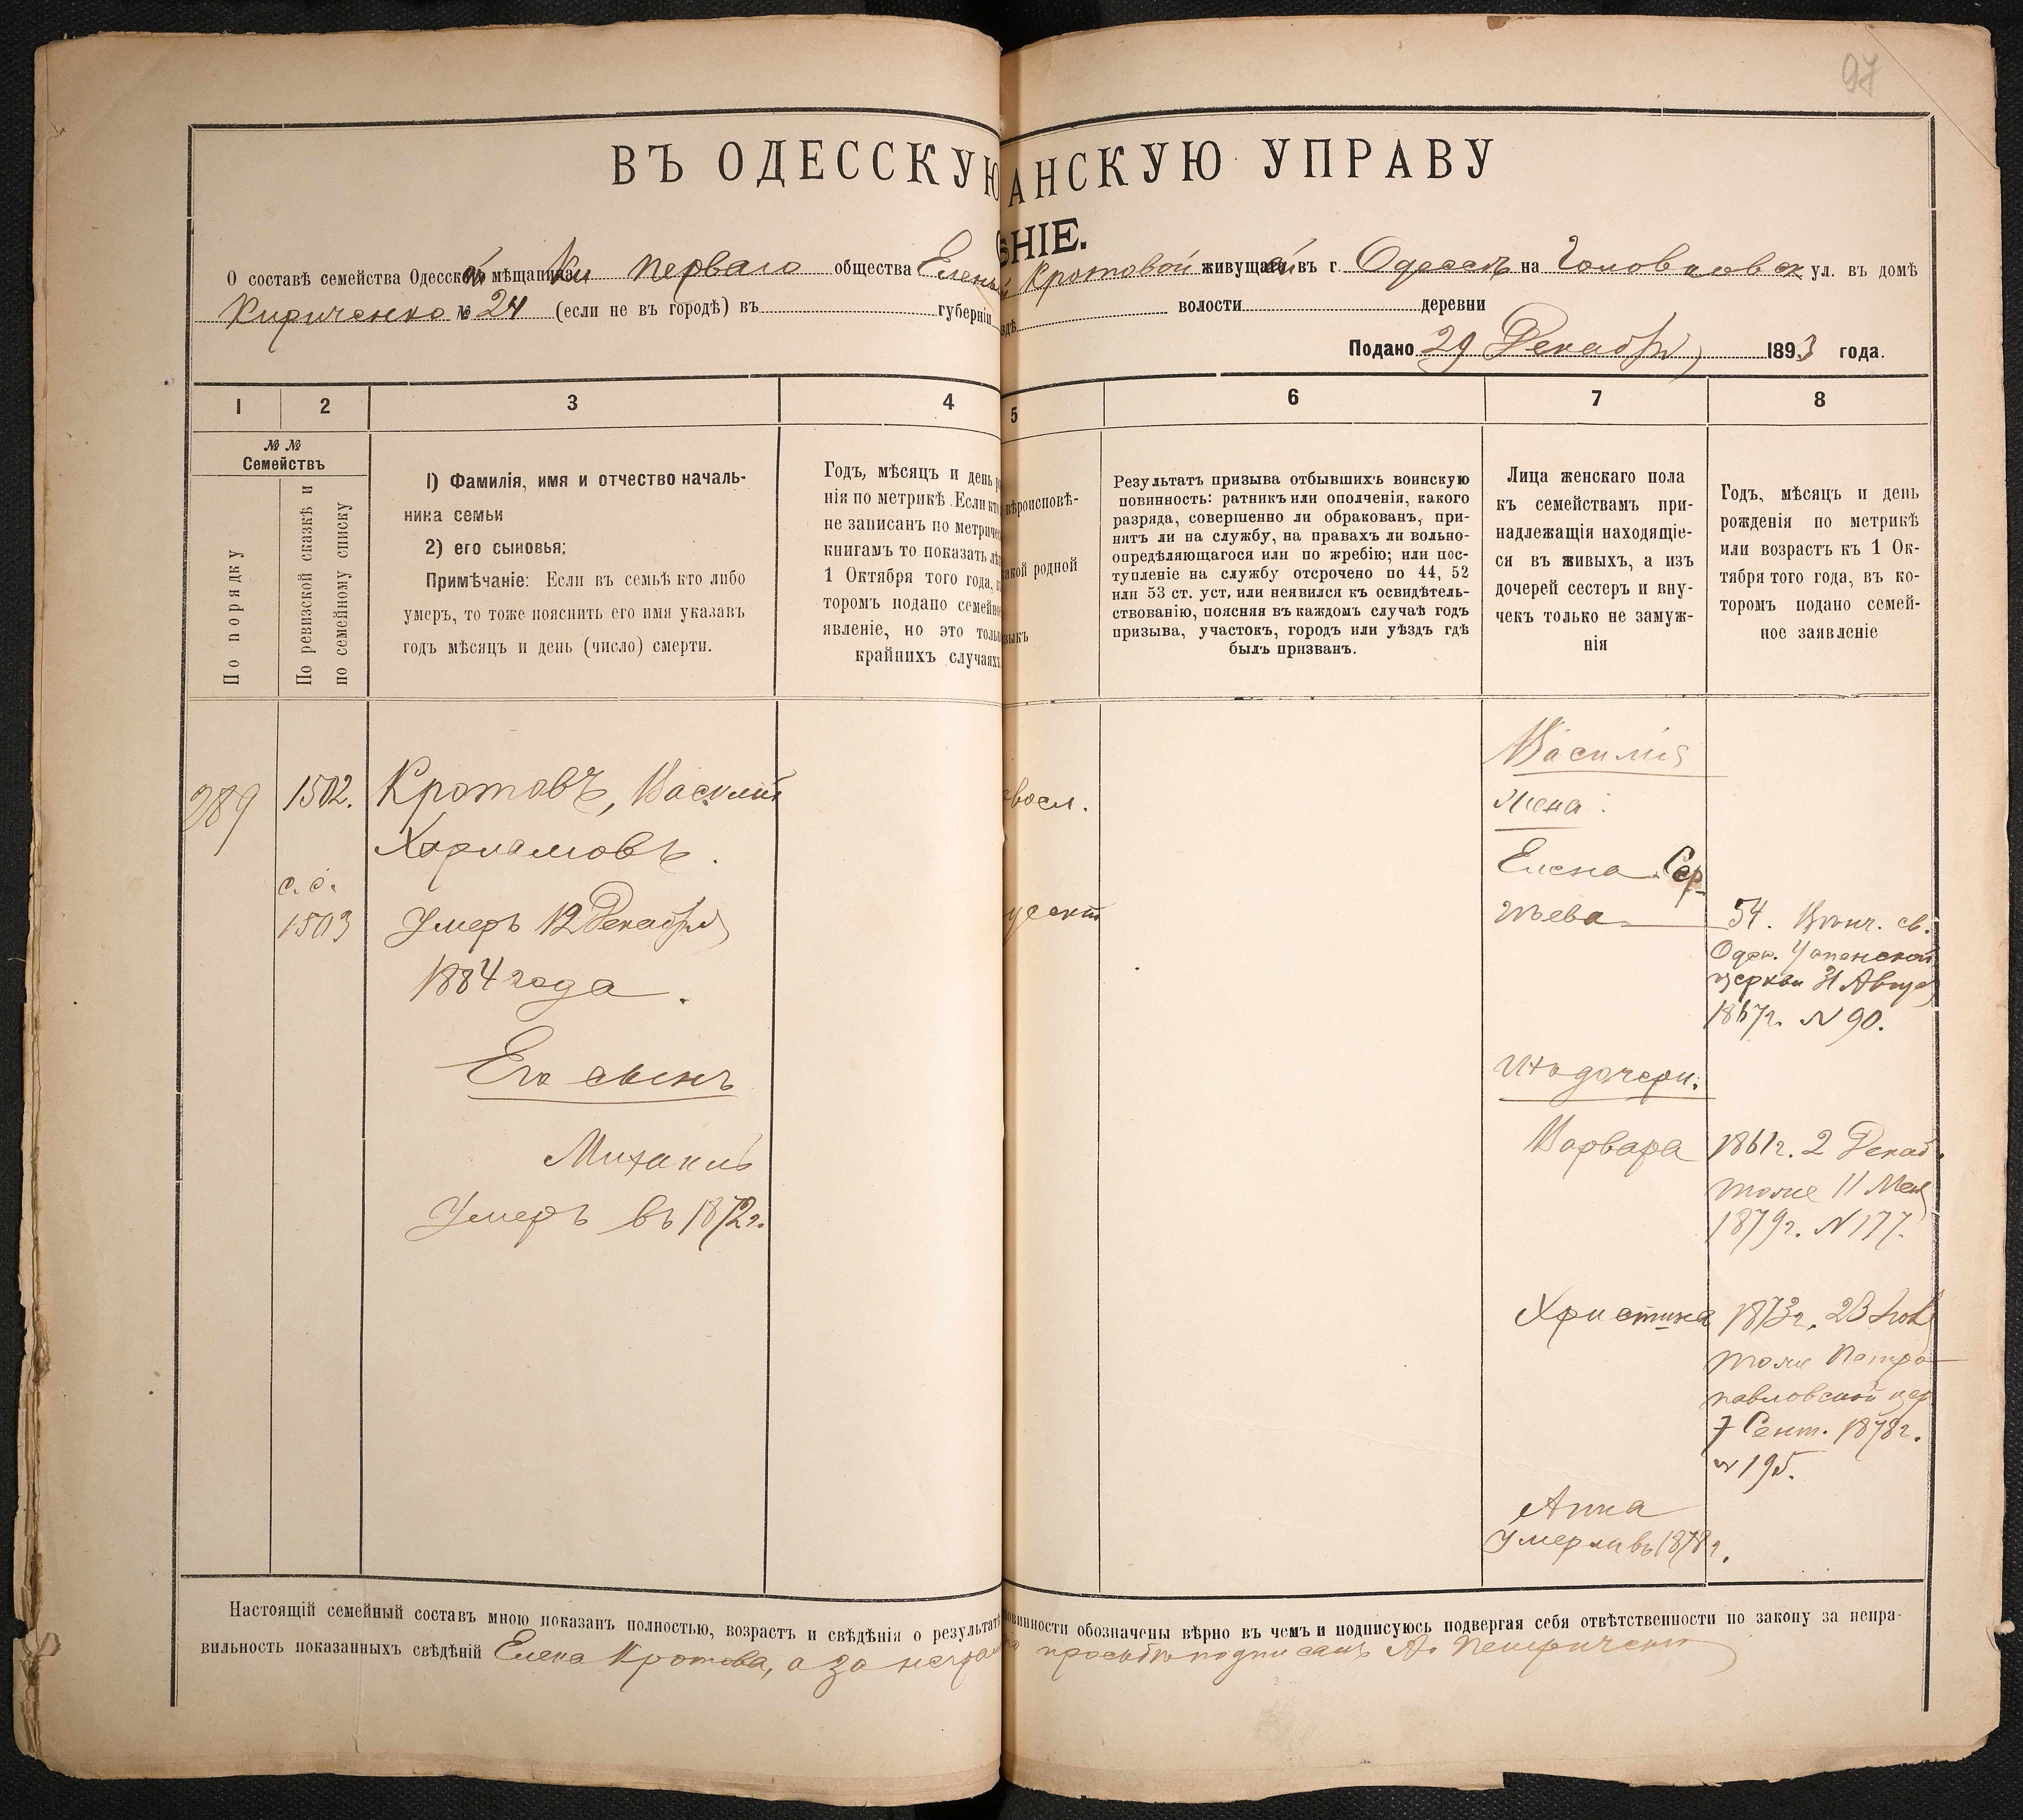 97
ВЪ ОДЕССКУЮ
АНСКУЮ УПРАВУ
ѢНІЕ.
О составѣ семейства Одесской мѣщанки перваго общества Елены
Кротовой живущей въ г. Одессѣ на Головковск ул. въ домѣ
Кириченко № 24 (если не въ городѣ) въ губерніи
волости деревни
Подано 29 Декабря 1893 года.
1 2 3 4
5 6 7 8
№ №
Семействъ
По порядку
По ревизской сказкѣ и
по семейному списку
1) Фамилія, имя и отчество началь-
ника семьи
2) его сыновья;
Примѣчаніе: Если въ семьѣ кто либо
умеръ, то тоже пояснить его имя указавъ
годъ мѣсяцъ и день (число) смерти.
Годъ, мѣсяцъ и день
нія по метрикѣ. Если кто
не записанъ по метриче
книгамъ то показать лѣ
1 Октября того года,
торомъ подано семейно
явленіе, но это толь
крайнихъ случаяхъ
вѣроисповѣ-
акой родной
зыкъ
Результатъ призыва отбывшихъ воинскую
повинность: ратникъ или ополченія, какого
разряда, совершенно ли обракованъ, при-
нятъ ли на службу, на правахъ ли вольно-
опредѣляющагося или по жребію; или пос-
тупленіе на службу отсрочено по 44, 52
или 53 ст. уст, или неявился къ освидѣтель-
ствованію, поясняя въ каждомъ случаѣ годъ
призыва, участокъ, городъ или уѣздъ гдѣ
былъ призванъ.
Лица женскаго пола
къ семействамъ при-
надлежащія находящіе-
ся въ живыхъ, а изъ
дочерей сестеръ и вну-
чекъ только не замуж-
нія
Годъ, мѣсяцъ и день
рожденія по метрикѣ
или возрастъ къ 1 Ок-
тября того года, въ ко-
торомъ подано семей-
ное заявленіе
289
1502.
с. с.
1503
Кротовъ, Василій
Харламовъ.
Умеръ 12 Декабря
1884 года.
Его сынъ
Михаилъ
Умеръ въ 1872 г.
восл.
усскій
Василія
жена:
Елена Сер-
гѣева
54. св.
Одес. Успенской
церкви 31 Августа
1867г. N 90.
Ихъ дочери:
Варвара
1861г. 2 Декаб.
тоже 11 Мая
1879г. N 177.
Христина
1873г. 23
тоже Петро-
павловской цер
7 Сент. 1878г.
N 195.
Анна
умерла въ 1878г.
Настоящій семейный составъ мною показанъ полностью, возрастъ и свѣдѣнія о результатѣ
овинности обозначены вѣрно въ чемъ и подписуюсь подвергая себя отвѣтственности по закону за непра-
вильность показанныхъ свѣдѣній Елена Кротова, а за неграм
просьбѣ подписалъ А. Петриченко